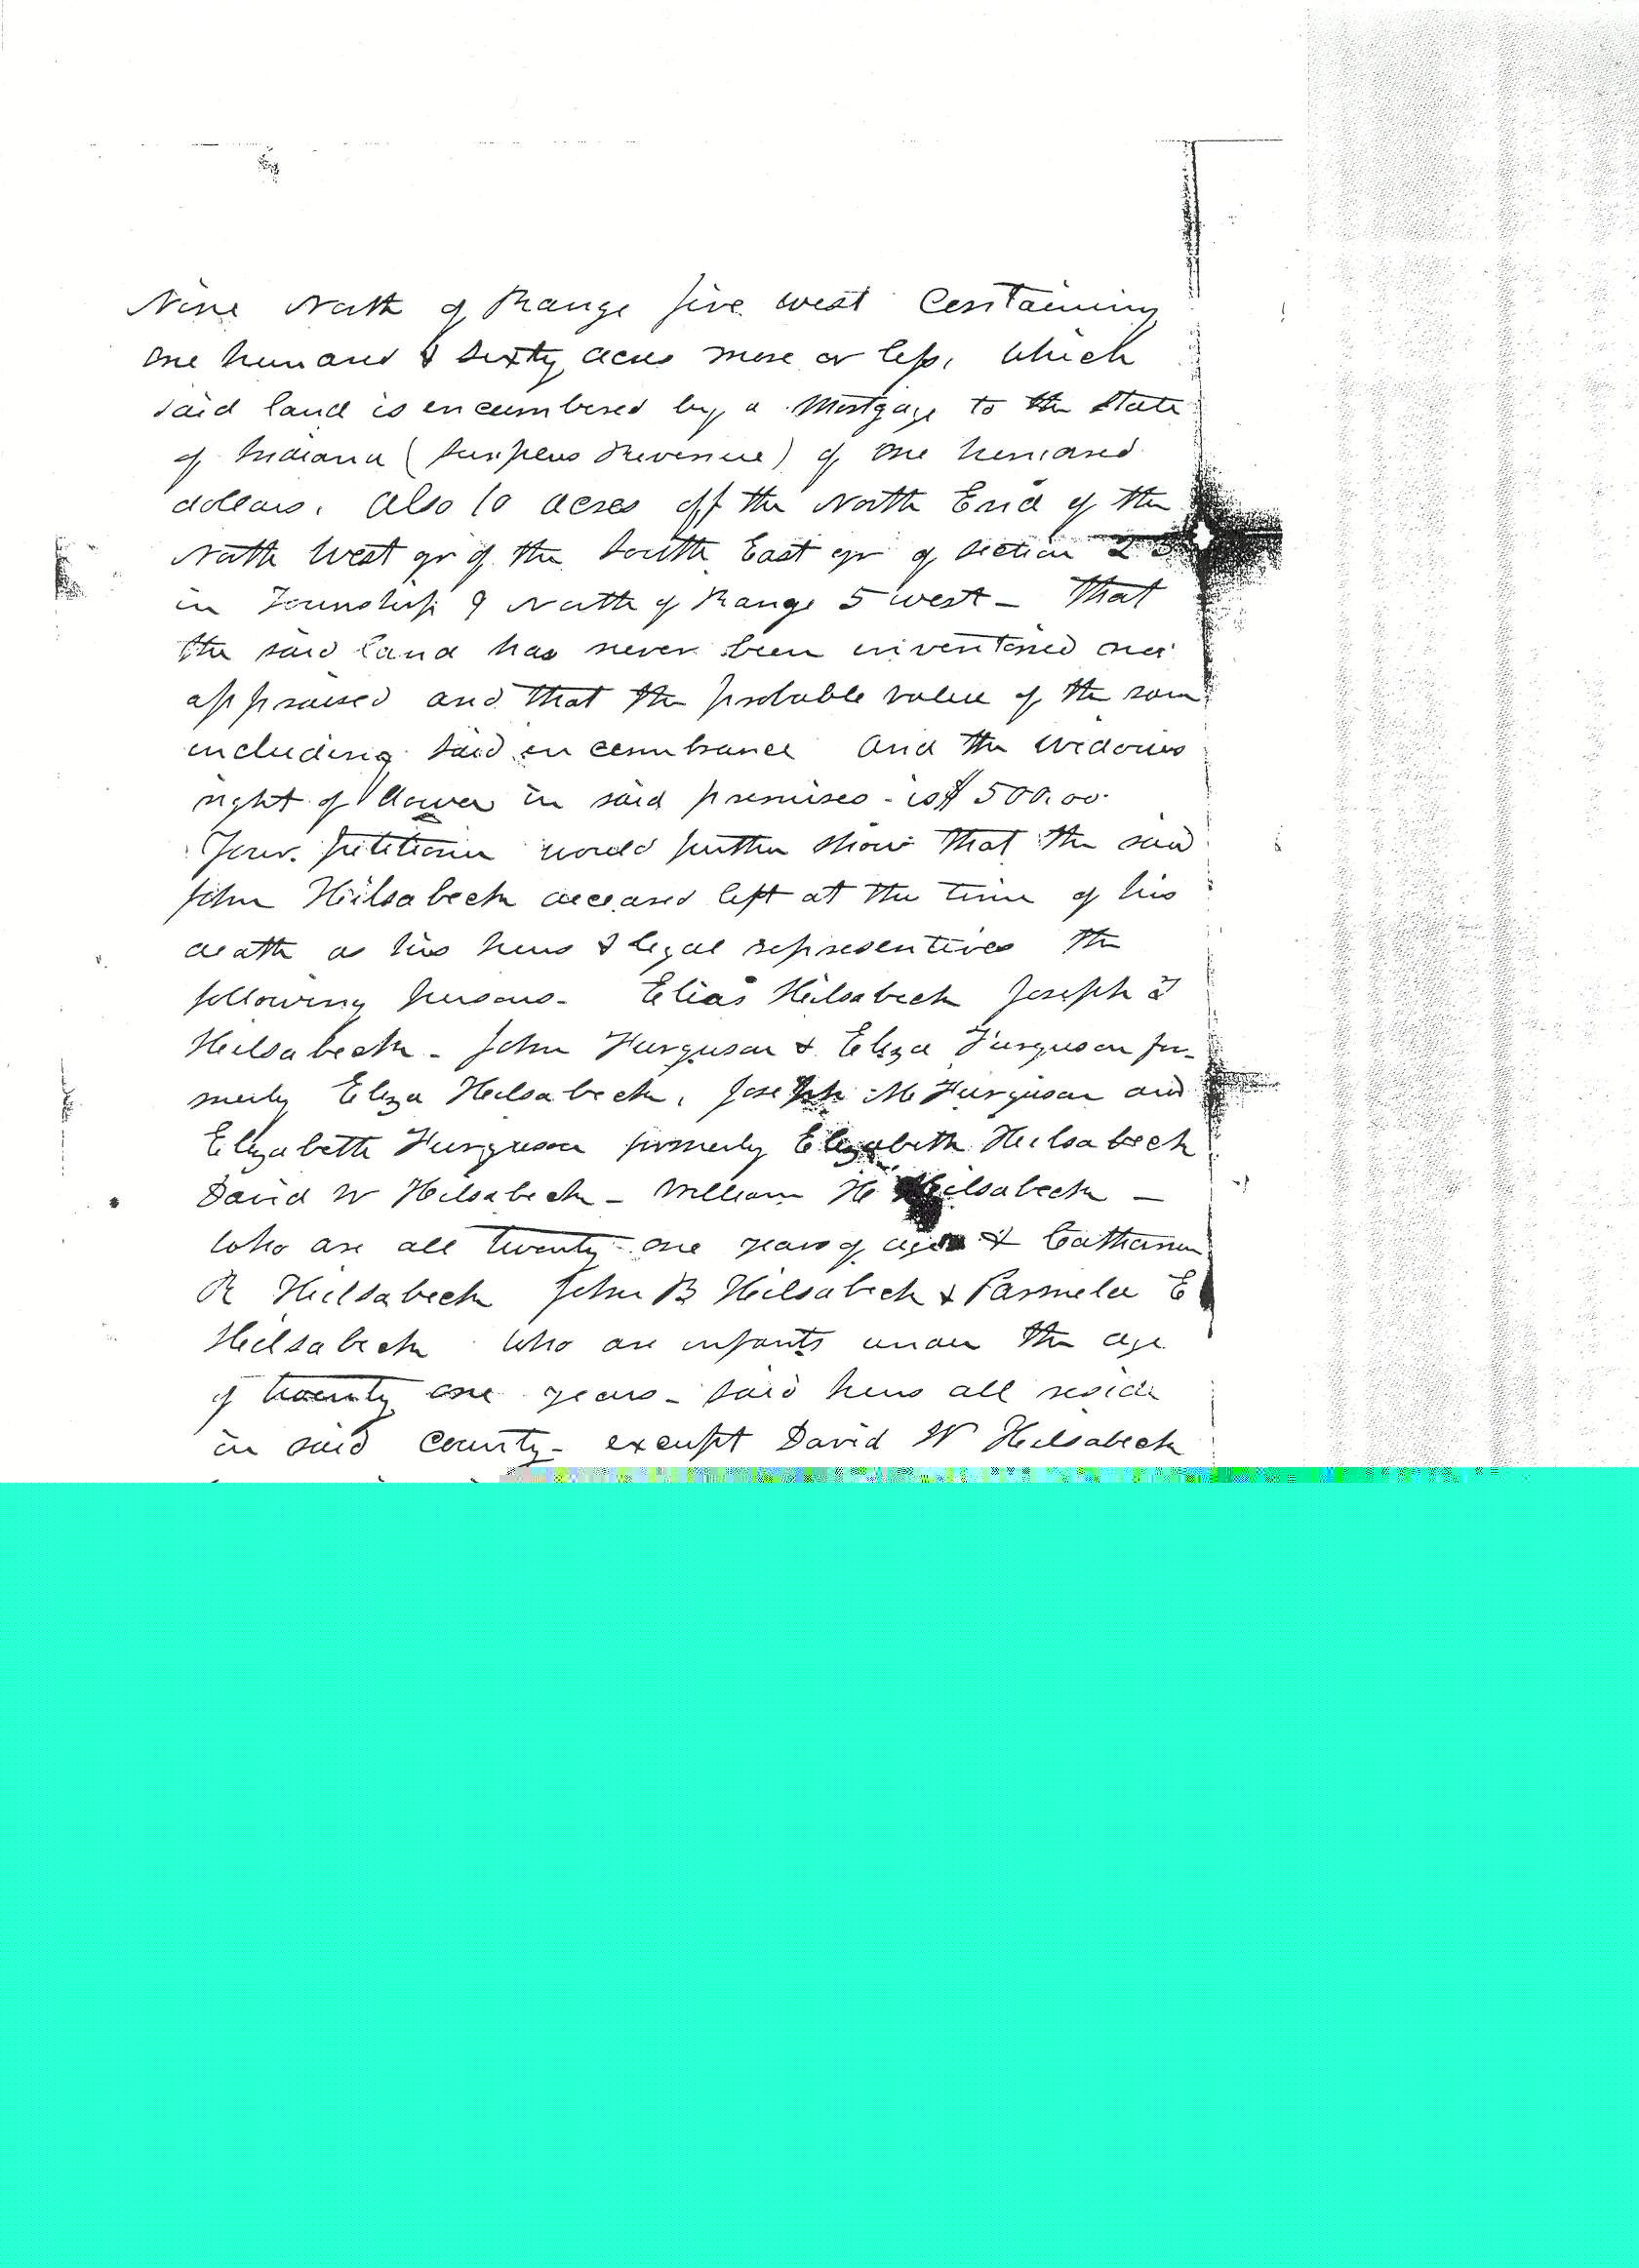 Nine North of Range five west Containing
one hundred & sixty acres more or less, which
said land is encumbered by a Mortgage to the State
of Indiana (Surplus Revenue) of one hundred
dollars, also 10 acres off the North End of the
North West qr of the South East qr of Section 23
in Township 9 North of Range 5 west – That
the said land has never been inventoried nor
appraised and that the probable value of the same
including said encumbrance and the widows
right of dower in said premises – is $500.00
Your petitioner would further show that the said
John Heilsabeck deceased left at the time of his
death as his heirs & legal representives the
following persons – Elias Heilsabeck Joseph
Heilsabeck – John Furguson & Eliza Furguson for-
merly Eliza Heilsabeck, Joseph M Furguson and
Elizabeth Furguson formerly Elizabeth Heilsabeck
David W Heilsabeck – William H Heilsabeck –
who are all twenty one years of age & Catharine
R Heilsabeck John B Heilsabeck & Parmela E
Heilsabeck who are infants under the age
of twenty one years – Said heirs all reside
in said County – excempt David W Heilsabeck